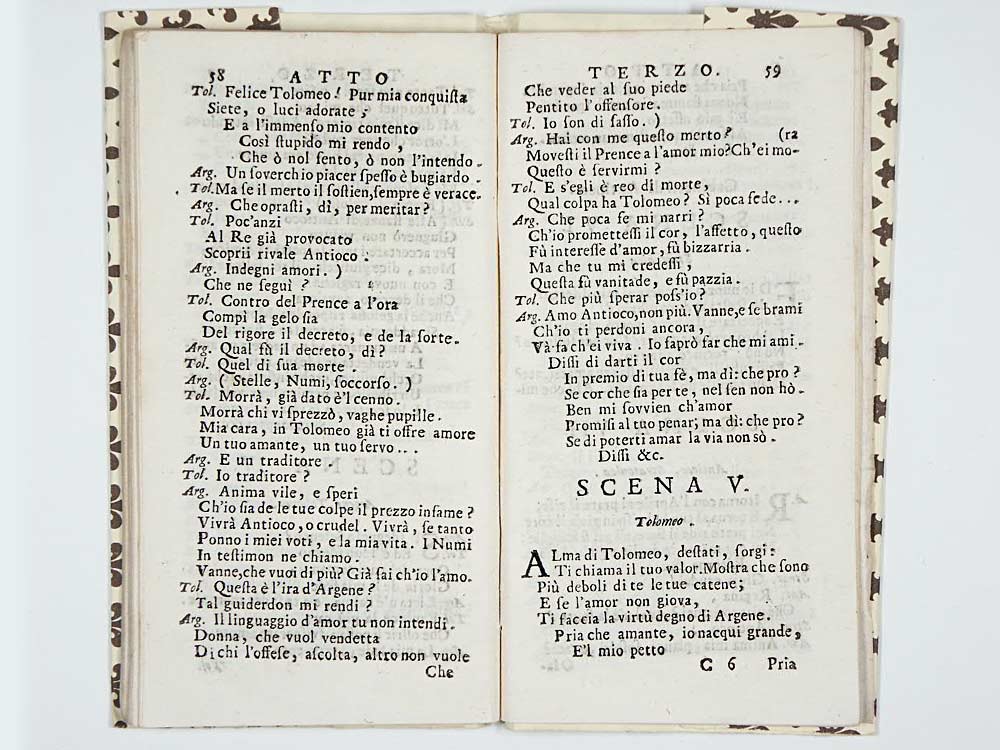 58 ATTO
Tol. Felice Tolomeo! Pur mia conquista
Siete, o luci adorate;
E a l'immenso mio contento
Così stupido mi rendo,
Che ò nol sento, ò non l'intendo.
Arg. Un soverchio piacer spesso è bugiardo.
Tol. Ma se il merto il sostien, sempre è verace.
Arg. Che oprasti, dì, per meritar?
Tol. Poc'anzi
Al Re già provocato
Scoprii rivale Antioco:
Arg. Indegni amori. )
Che ne seguì?
Tol. Contro del Prence a l'ora
Compì la gelosia
Del rigore il decreto, e de la sorte.
Arg. Qual fù il decreto, dì?
Tol. Quel di sua morte.
Arg. (Stelle, Numi, soccorso.)
Tol. Morrà, già dato è'l cenno.
Morrà chi vi sprezzò, vaghe pupille.
Mia cara, in Tolomeo già ti offre amore
Un tuo amante, un tuo servo...
Arg. E un traditore.
Tol. Io traditore?
Arg. Anima vile, e speri
Ch'io sia de le tue colpe il prezzo infame?
Vivrà Antioco, o crudel. Vivrà, se tanto
Ponno i miei voti, e la mia vita. I Numi
In testimon ne chiamo.
Vanne, che vuoi di più? Già sai ch'io l'amo.
Tol. Questa è l'ira d'Argene?
Tal guiderdon mi rendi?
Arg. Il linguaggio d'amor tu non intendi.
Donna, che vuol vendetta
Di chi l'offese, ascolta, altro non vuole
Che
TERZO. 59
Che veder al suo piede
Pentito l'offensore.
Tol. Io son di sasso. )
Arg. Hai con me questo merto? (ra
Movesti il Prence a l'amor mio? Ch'ei mo-
Questo è servirmi?
Tol. E s'egli è reo di morte,
Qual colpa ha Tolomeo? Sì poca fede...
Arg. Che poca fe mi narri?
Ch'io promettessi il cor, l'affetto, questo
Fù interesse d'amor, fù bizzarria.
Ma che tu mi credessi,
Questa fù vanitade, e fù pazzia.
Tol. Che più sperar poss'io?
Arg. Amo Antioco, non più. Vanne, e se brami
Ch'io ti perdoni ancora,
Và fa ch'ei viva. Io saprò far che mi ami.
Dissi di darti il cor
In premio di tua fè, ma dì: che pro?
Se cor che sia per te, nel sen non hò.
Ben mi sovvien ch'amor
Promisi al tuo penar; ma dì: che pro?
Se di poterti amar la via non sò.
Dissi &c.
SCENA V.
Tolomeo.
ALma di Tolomeo, destati, sorgi:
Ti chiama il tuo valor. Mostra che sono
Più deboli di te le tue catene;
E se l'amor non giova,
Ti faccia la virtù degno di Argene.
Pria che amante, io nacqui grande,
E'l mio petto
C 6 Pria